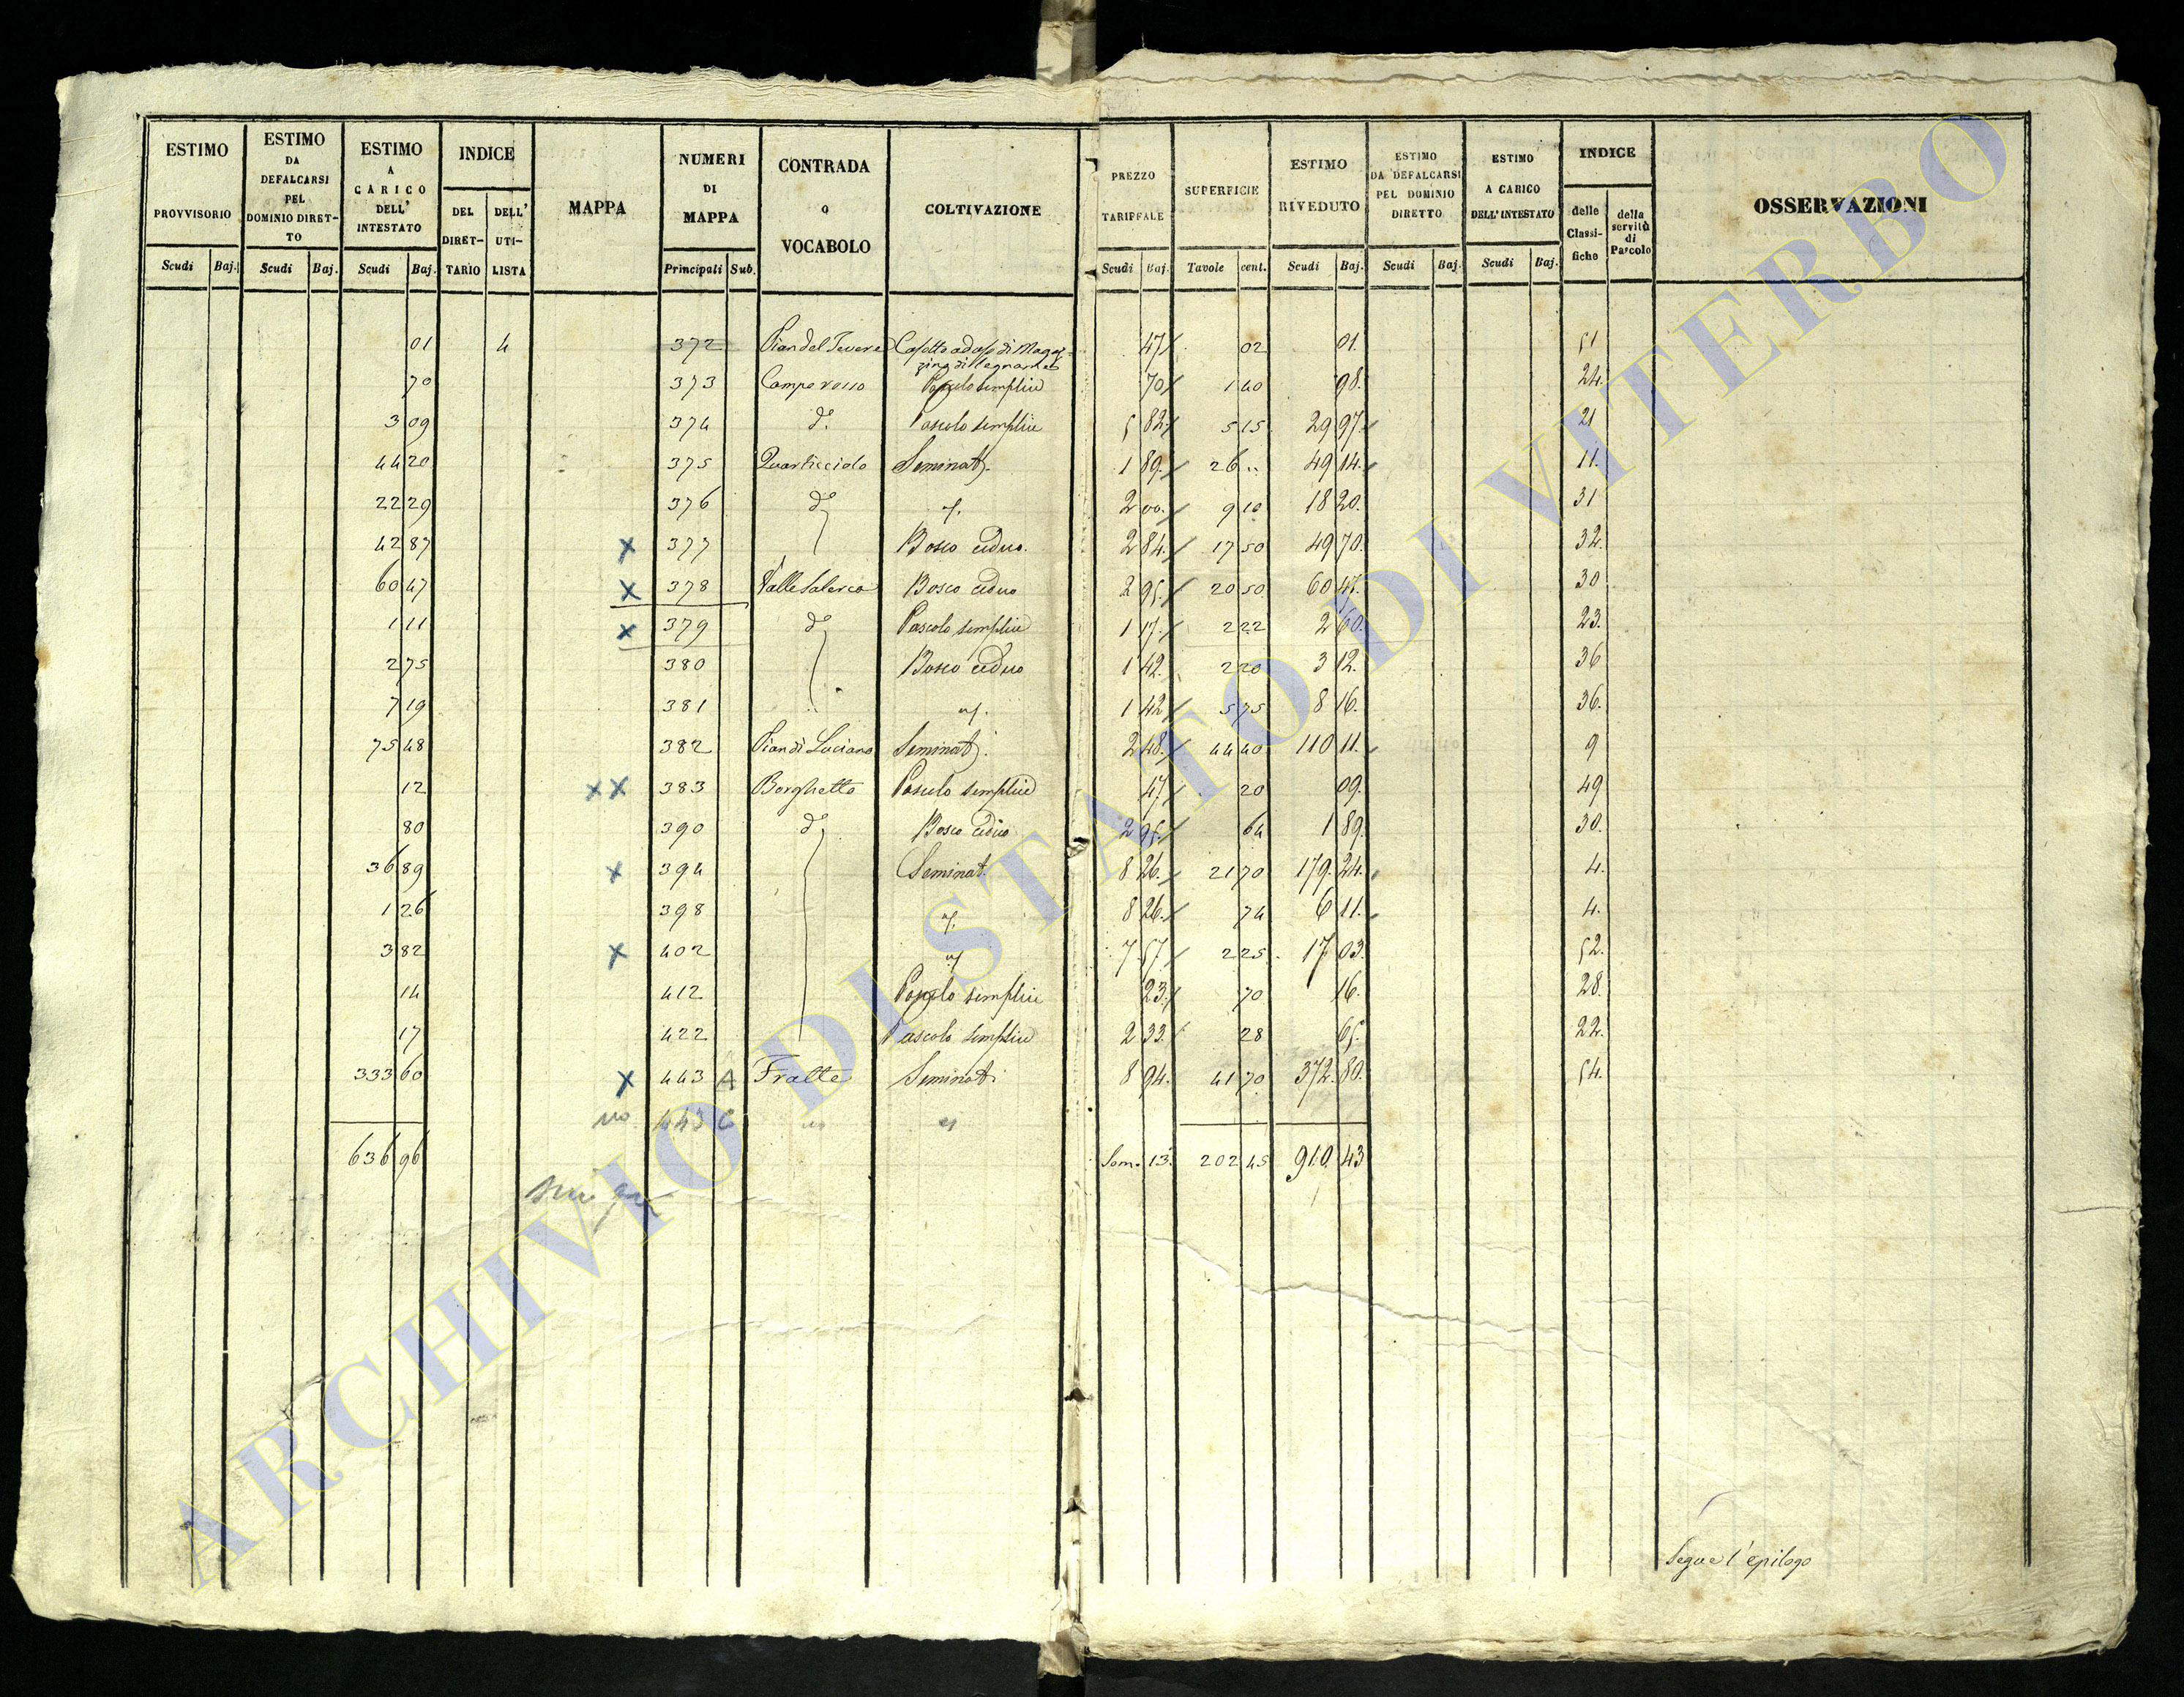 ESTIMO PROVVISORIO Scudi Baj. ESTIMO DA DEFALCARSI PEL DOMINIO DIRET-TO Scudi Baj. ESTIMO A CARICO DELL' INTESTATO Scudi Baj. INDICE DEL DIRET-TARIO DELL' UTI-LISTA MAPPA NUMERI DI MAPPA Principali Sub. CONTRADA o VOCABOLO COLTIVAZIONE PREZZO TARIFFALE Scudi Baj. SUPERFICIE Tavole cent. ESTIMO RIVEDUTO Scudi Baj. ESTIMO DA DEFALCARSI PEL DOMINIO DIRETTO Scudi Baj. ESTIMO A CARICO DELL' INTESTATO Scudi Baj. INDICE delle Classi-fiche della servitù di Pascolo OSSERVAZIONI
01 4 372 Pian del Tevere Casotto ad uso di Magaz- 47 02 01. 51
zino di Legname
70 373 Campo rosso Pascolo semplice 70 1 40 98. 24.
3 09 374 d.o Pascolo semplice 5 82 5 15 29 97. 21
44 20 375 Quarticciolo Seminat. 1 89. 26 .. 49 14. 11.
22 29 376 d.o 2 00. 9 10 18 20. 31
42 87 x 377 Bosco ceduo. 2 84. 17 50 49 70. 32.
60 47 x 378 Valle Salerca Bosco ceduo 2 95. 20 50 60 47. 30
1 11 x 379 d.o Pascolo semplice 1 17. 2 22 2 60. 23.
2 75 380 Bosco ceduo 1 42. 2 20 3 12. 36
7 19 381 1 42 5 75 8 16. 36.
75 48 382 Pian di Luciano Seminat. 2 48. 44 40 110 11. 9
12 xx 383 Borghetto Pascolo semplice 47 20 09. 49
80 390 d.o Bosco ceduo 2 95. 64 1 89. 30.
36 89 x 394 Seminat. 8 26. 21 70 179. 24. 4.
1 26 398 8 26. 74 6 11. 4.
3 82 x 402 7 57 2 25. 17 03. 52.
14 412 Pascolo semplice 23. 70 16. 28.
17 422 Pascolo semplice 2 33. 28 65. 22.
333 60 x 443 A Fratte Seminat. 8 94. 41 70 372. 80. 54.
no 443 C
636 96 Som. 13. 202 45 910. 43
Segue l'epilogo
ARCHIVIO DI STATO DI VITERBO